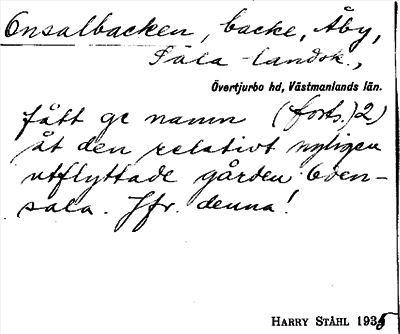 Onsalbacken, backe, Åby,
Sala landsk.,
Övertjurbo hd, Västmanlands län.
fått ge namn (forts.) 2)
åt den relativt nyligen
utflyttade gården Oven-
sala. Jfr. denna!
HARRY STÅHL 1935